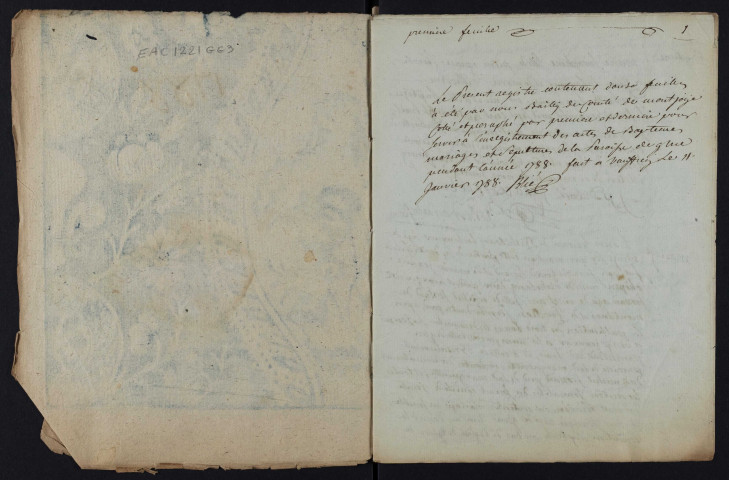 EAC1221GG3
premiere feuille 1
Le Present registre contenant douse feuilles
a été par nous Bailly du Comté de montjoye
Coté et paraphé par premiere et derniere pour
servir à l'enregistrement des actes de Baptemes
mariages et Sepultures de la Paroisse de
pendant l'année 1788. fait a Vauffrey Le 11.
Janvier 1788.